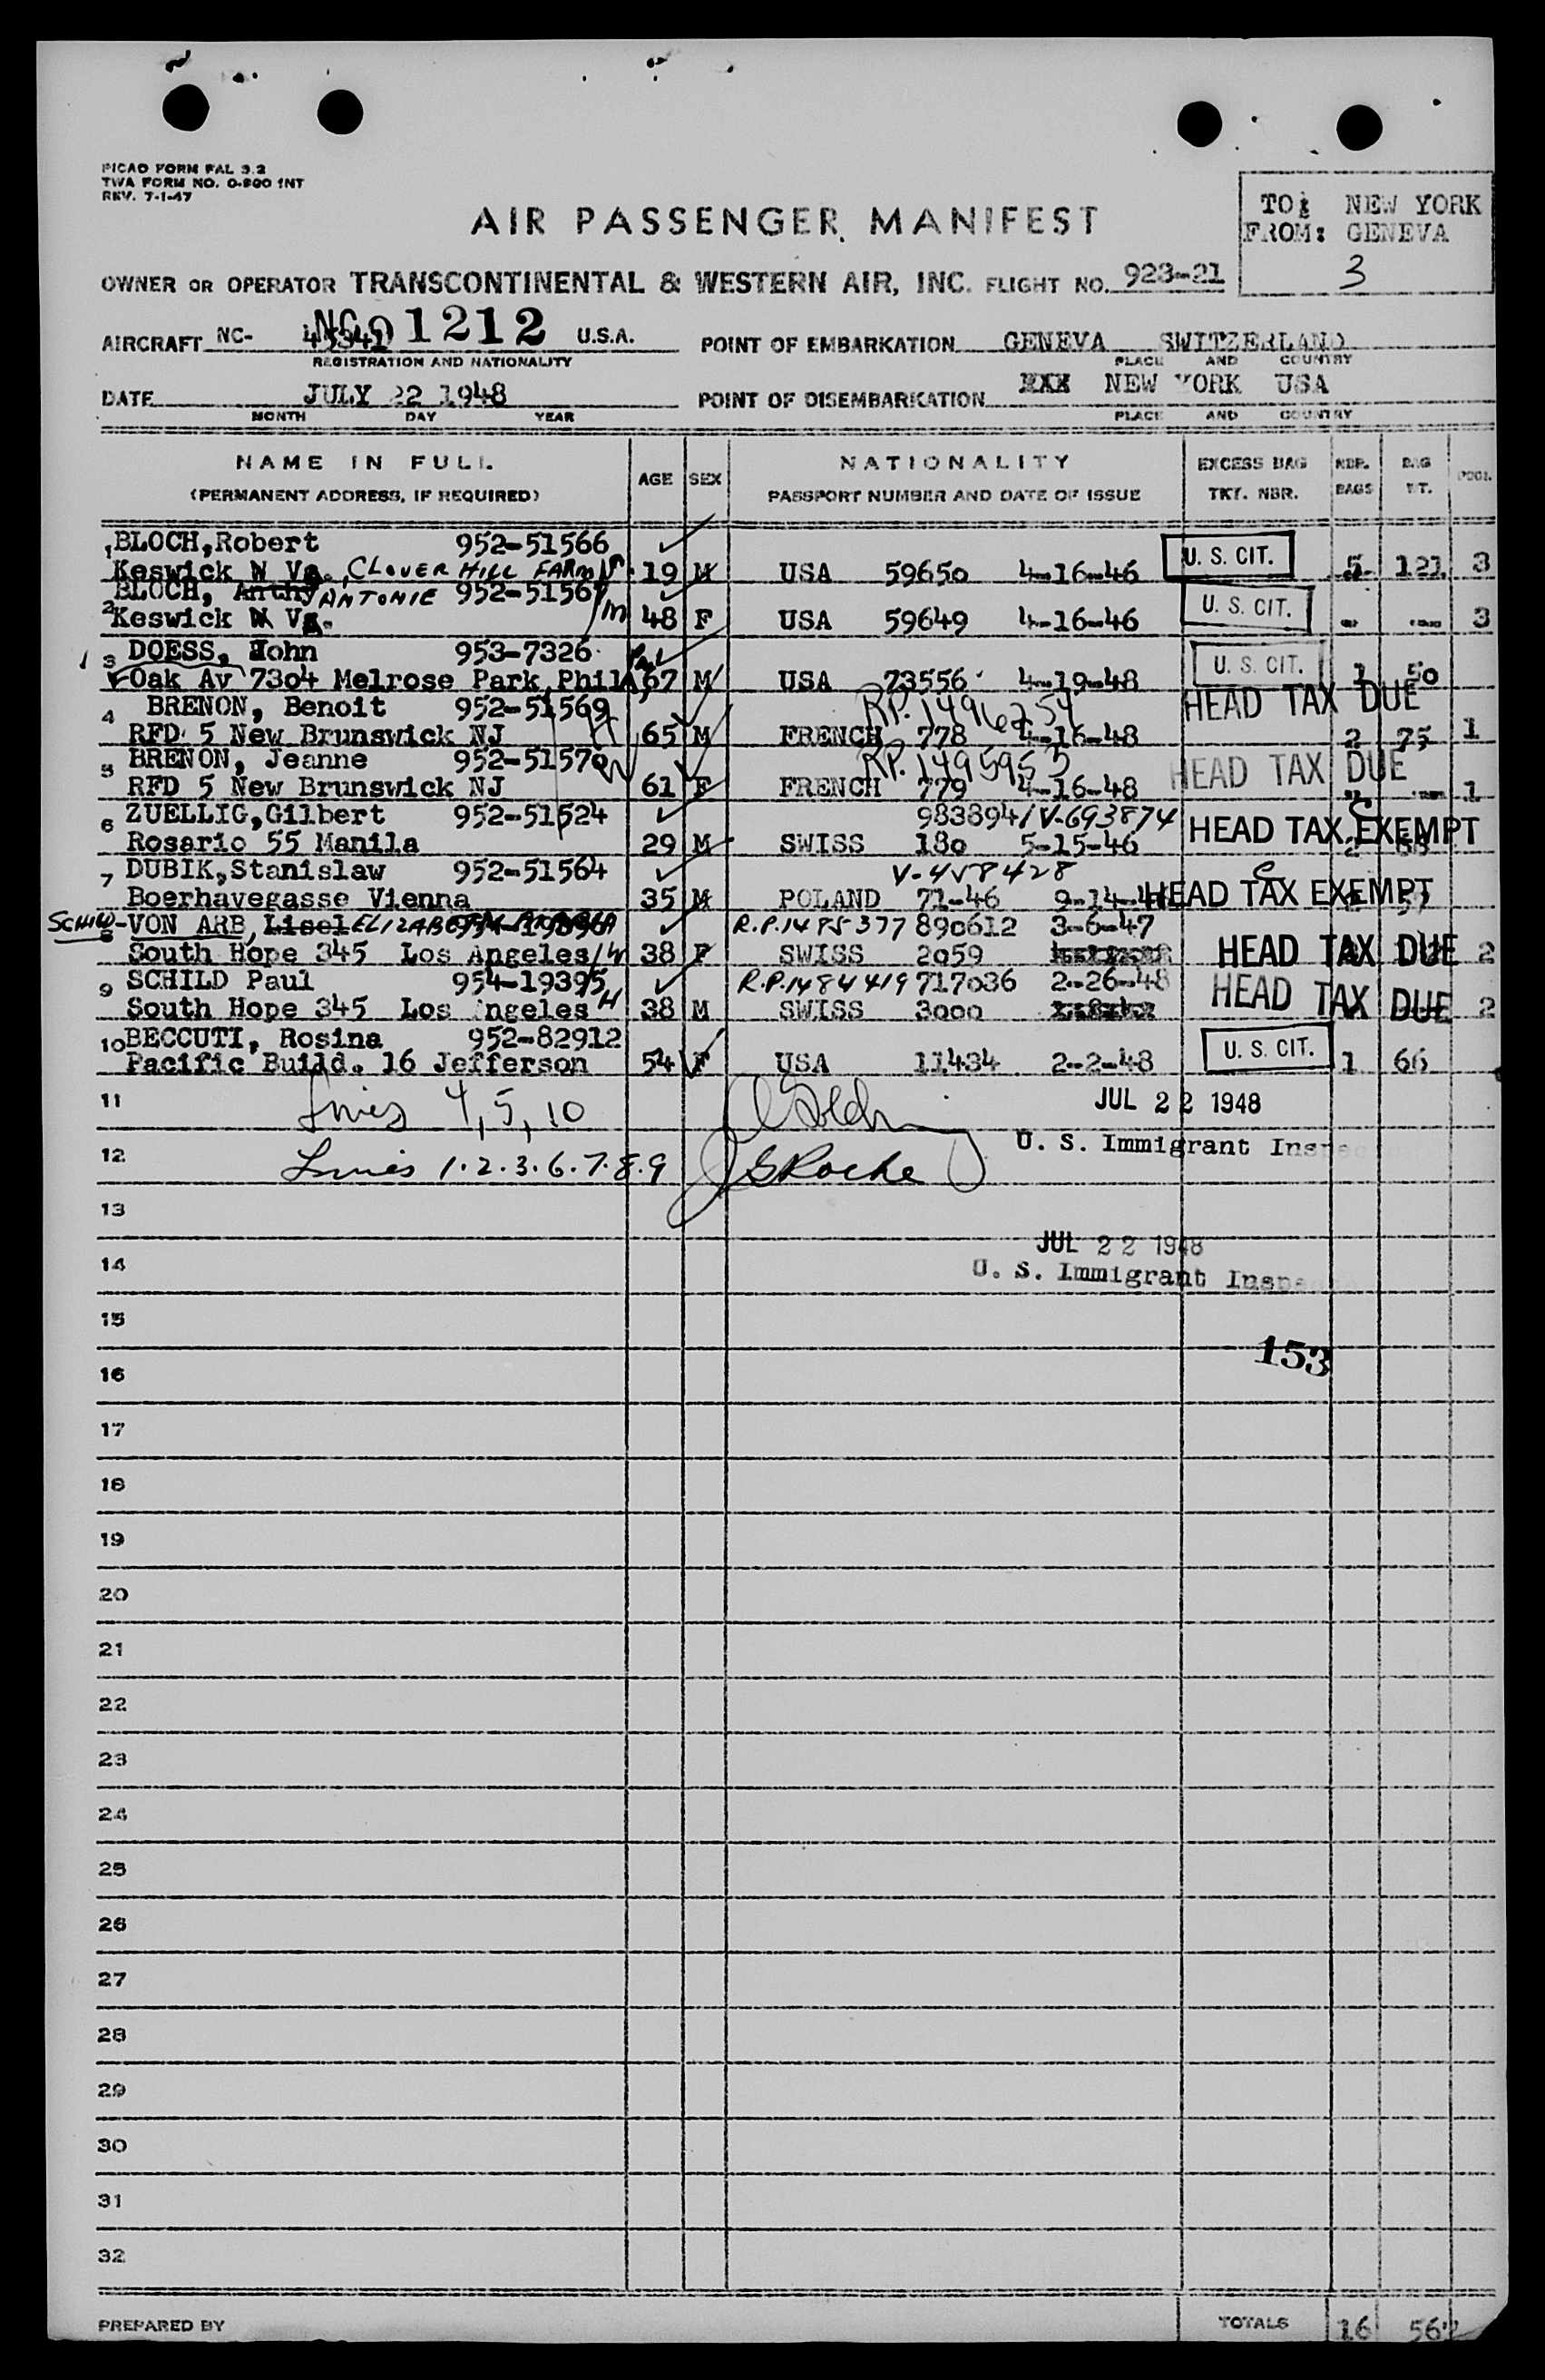 PICAO FORM FAL 3.2
TWA FORM NO. O-800 INT
REV. 7-1-47
AIR PASSENGER MANIFEST
TO: NEW YORK
FROM: GENEVA
3
OWNER OR OPERATOR TRANSCONTINENTAL & WESTERN AIR, INC. FLIGHT NO. 923-21
AIRCRAFT NC- 1212 U.S.A. POINT OF EMBARKATION GENEVA SWITZERLAND
REGISTRATION AND NATIONALITY PLACE AND COUNTRY
DATE JULY 22 1948 POINT OF DISEMBARKATION NEW YORK USA
MONTH DAY YEAR PLACE AND COUNTRY
NAME IN FULL AGE SEX NATIONALITY EXCESS BAG NBR. BAG POOL
(PERMANENT ADDRESS, IF REQUIRED) PASSPORT NUMBER AND DATE OF ISSUE TKT. NBR. BAGS WT.
1 BLOCH, Robert 952-51566
Keswick Va. CLOVER HILL FARM 19 M USA 59650 4-16-46 U. S. CIT. 5 121 3
2 BLOCH, Anthy ANTONIE 952-5156
Keswick Va. 48 F USA 59649 4-16-46 U. S. CIT. - - 3
3 DOESS, John 953-7326
Oak Av 7304 Melrose Park, Phila 67 M USA 73556 4-19-48 U. S. CIT. 1 50
4 BRENON, Benoit 952-51569 R.P. 1496254 HEAD TAX DUE
RFD 5 New Brunswick NJ 65 M FRENCH 778 4-16-48 2 75 1
5 BRENON, Jeanne 952-51570 R.P. 1495953 HEAD TAX DUE
RFD 5 New Brunswick NJ 61 F FRENCH 779 4-16-48 1
6 ZUELLIG, Gilbert 952-51524 983894/V-693874 HEAD TAX EXEMPT
Rosario 55 Manila 29 M SWISS 180 5-15-46 2
7 DUBIK, Stanislaw 952-51564 V-458428
Boerhavegasse Vienna 35 M POLAND 71-46 9-14- HEAD TAX EXEMPT
8 VON ARB, Lisel ELIZABETH R.P. 1485377 890612 3-6-47
South Hope 345 Los Angeles 38 F SWISS 2059 HEAD TAX DUE 2
9 SCHILD Paul 954-19395 R.P. 1484419 717036 2-26-48
South Hope 345 Los Angeles 38 M SWISS 3000 HEAD TAX DUE 2
10 BECCUTI, Rosina 952-82912
Pacific Build. 16 Jefferson 54 F USA 11434 2-2-48 U. S. CIT. 1 66
11 Lines 4, 5, 10 JUL 22 1948
U. S. Immigrant Inspec
12 Lines 1. 2. 3. 6. 7. 8. 9 Roche
13
JUL 22 1948
14 U. S. Immigrant Inspe
15
153
16
17
18
19
20
21
22
23
24
25
26
27
28
29
30
31
32
PREPARED BY TOTALS 16 562